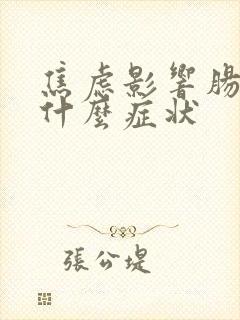 焦虑影響腸
什麼症状
張公堤